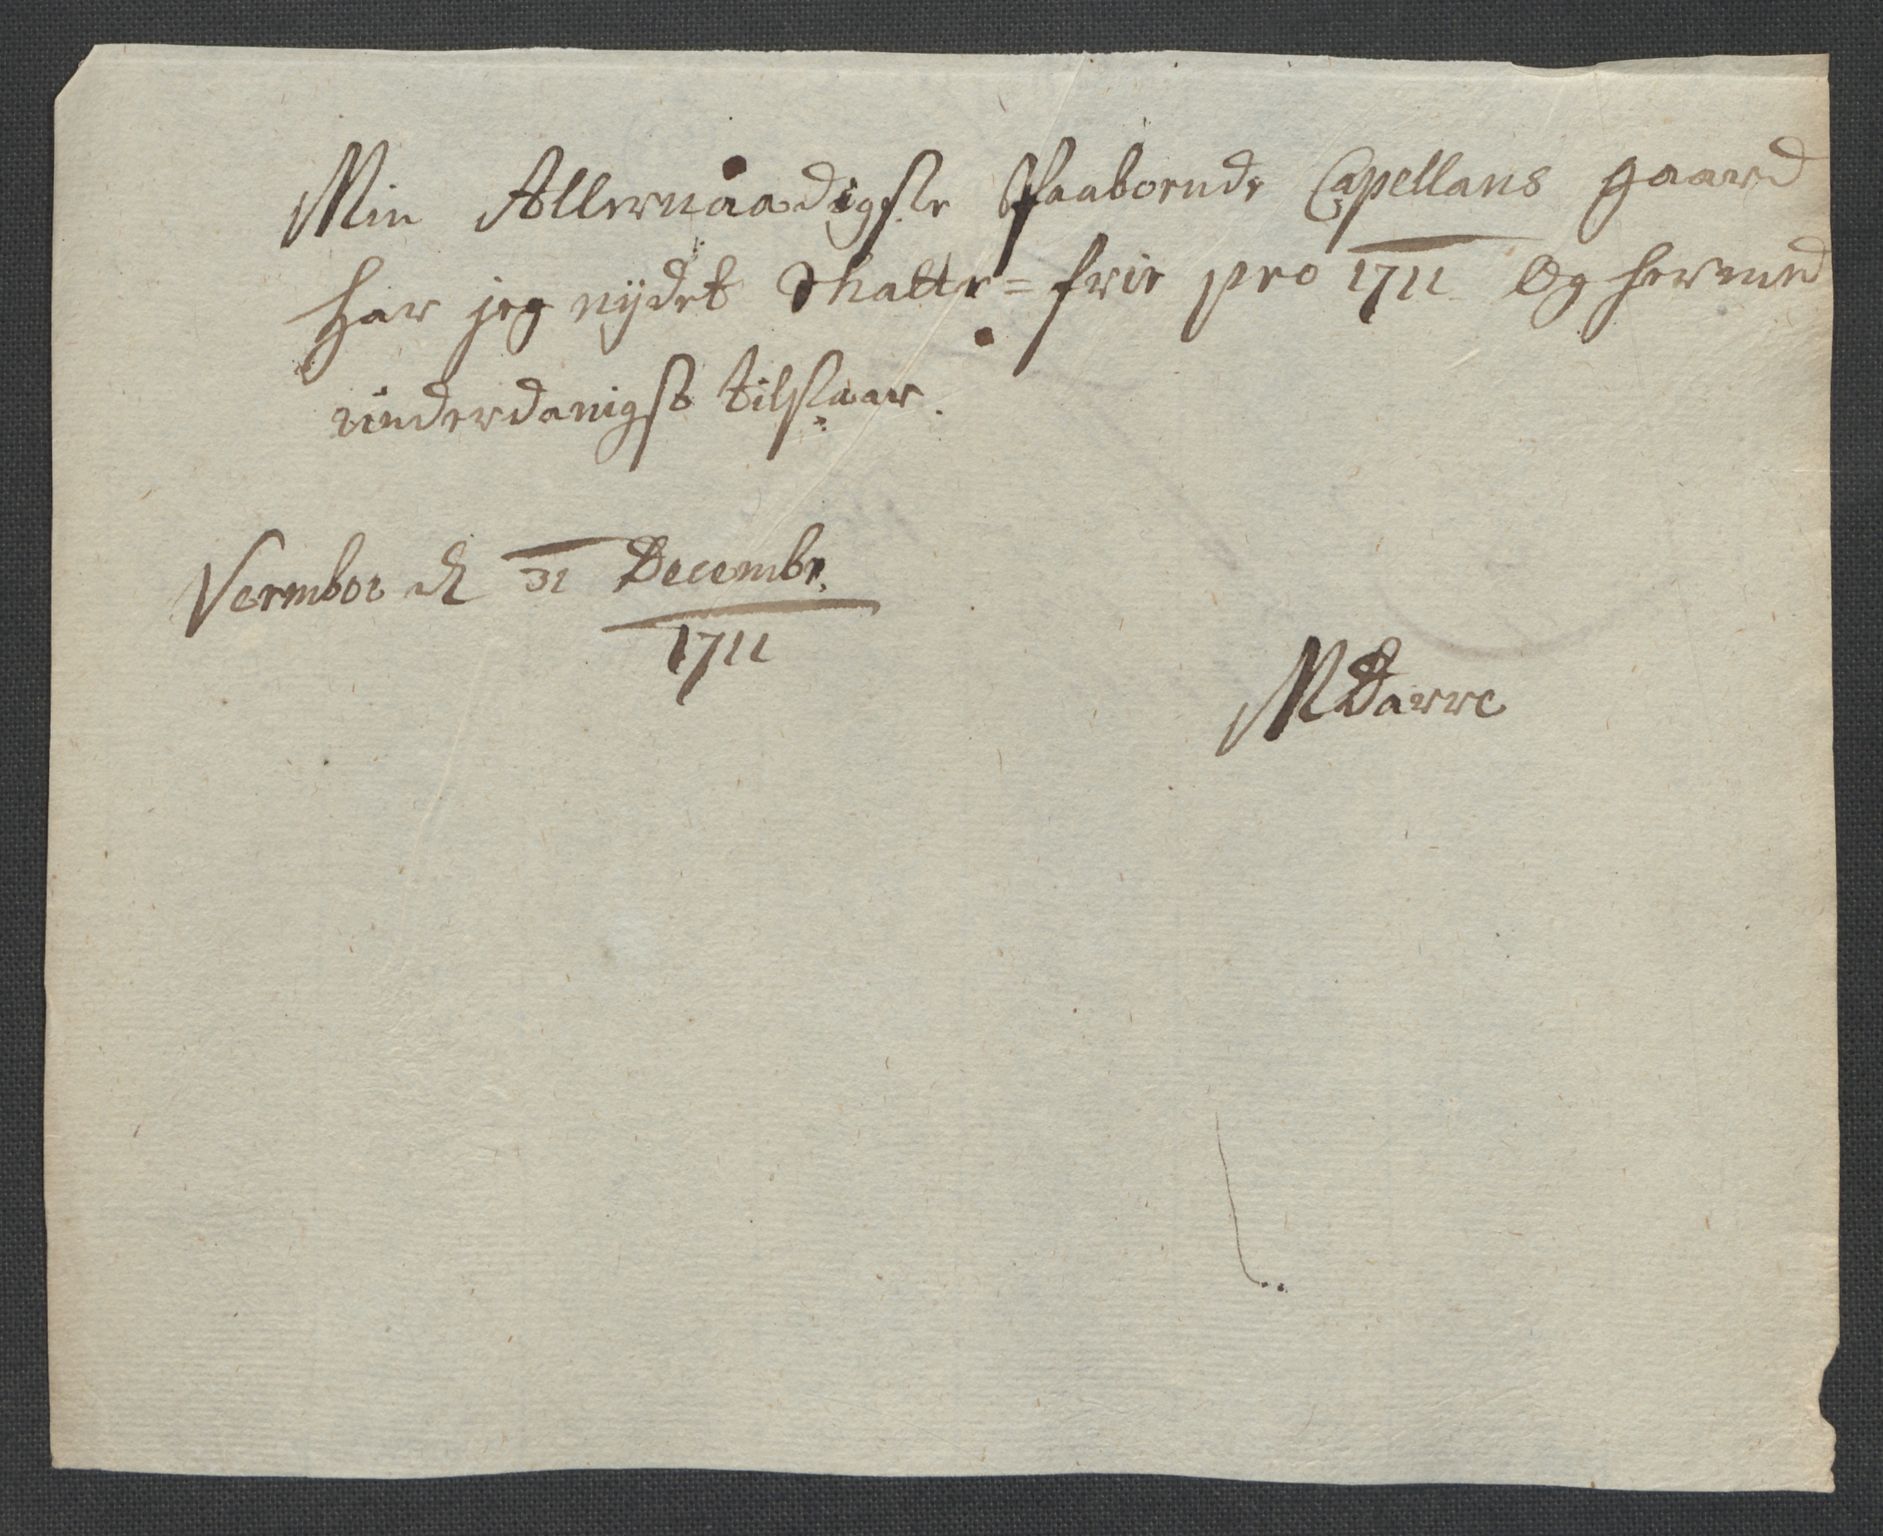 Min Allernaadigste Paaboende Capellans gaard
har jeg nydet Skatte=frie pro 1711 Og hermed
underdanigst tilstaar.
Vermboe d 31 Decembr.
1711
MDarre